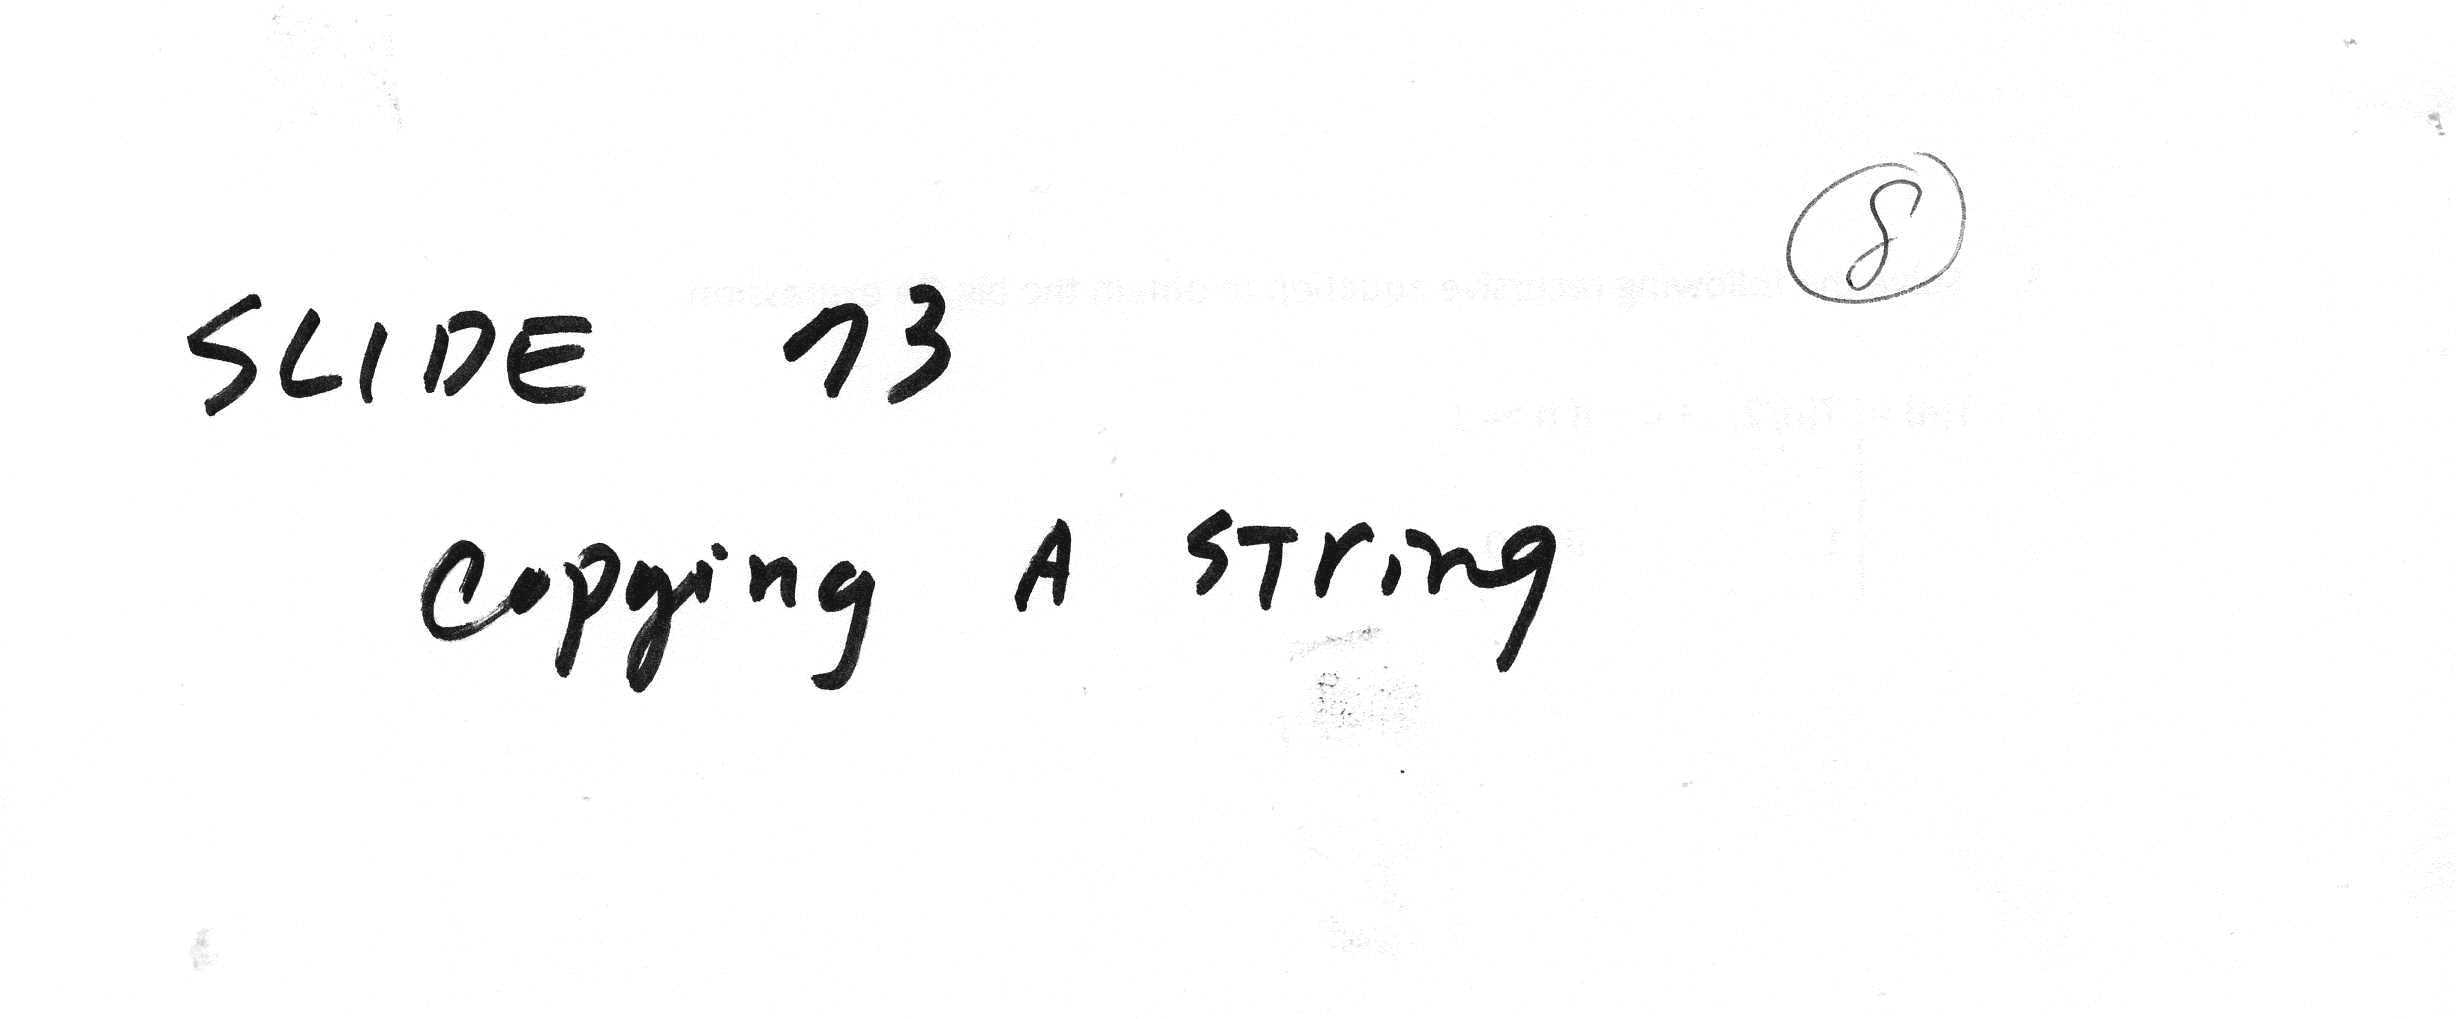 8
SLIDE 73
Copying A STring